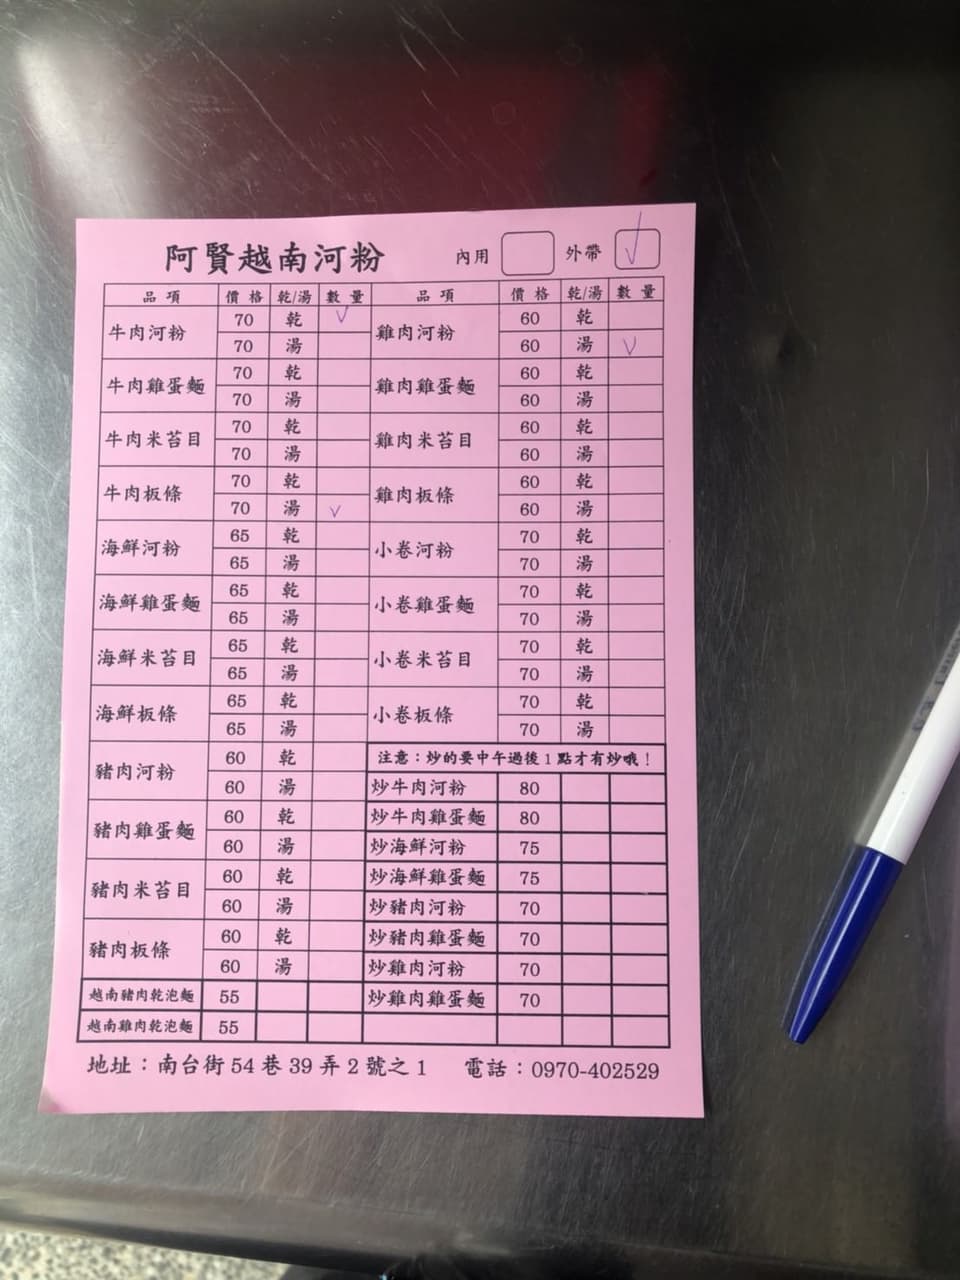 阿賢越南河粉 內用 外帶 ✓
品項 價格 乾/湯 數量 品項 價格 乾/湯 數量
牛肉河粉 70 乾 ✓ 雞肉河粉 60 乾
70 湯 60 湯 ✓
牛肉雞蛋麵 70 乾 雞肉雞蛋麵 60 乾
70 湯 60 湯
牛肉米苔目 70 乾 雞肉米苔目 60 乾
70 湯 60 湯
牛肉板條 70 乾 雞肉板條 60 乾
70 湯 ✓ 60 湯
海鮮河粉 65 乾 小卷河粉 70 乾
65 湯 70 湯
海鮮雞蛋麵 65 乾 小卷雞蛋麵 70 乾
65 湯 70 湯
海鮮米苔目 65 乾 小卷米苔目 70 乾
65 湯 70 湯
海鮮板條 65 乾 小卷板條 70 乾
65 湯 70 湯
豬肉河粉 60 乾 注意：炒的要中午過後1點才有炒哦！
60 湯 炒牛肉河粉 80
豬肉雞蛋麵 60 乾 炒牛肉雞蛋麵 80
60 湯 炒海鮮河粉 75
豬肉米苔目 60 乾 炒海鮮雞蛋麵 75
60 湯 炒豬肉河粉 70
豬肉板條 60 乾 炒豬肉雞蛋麵 70
60 湯 炒雞肉河粉 70
越南豬肉乾泡麵 55 炒雞肉雞蛋麵 70
越南雞肉乾泡麵 55
地址：南台街54巷39弄2號之1 電話：0970-402529